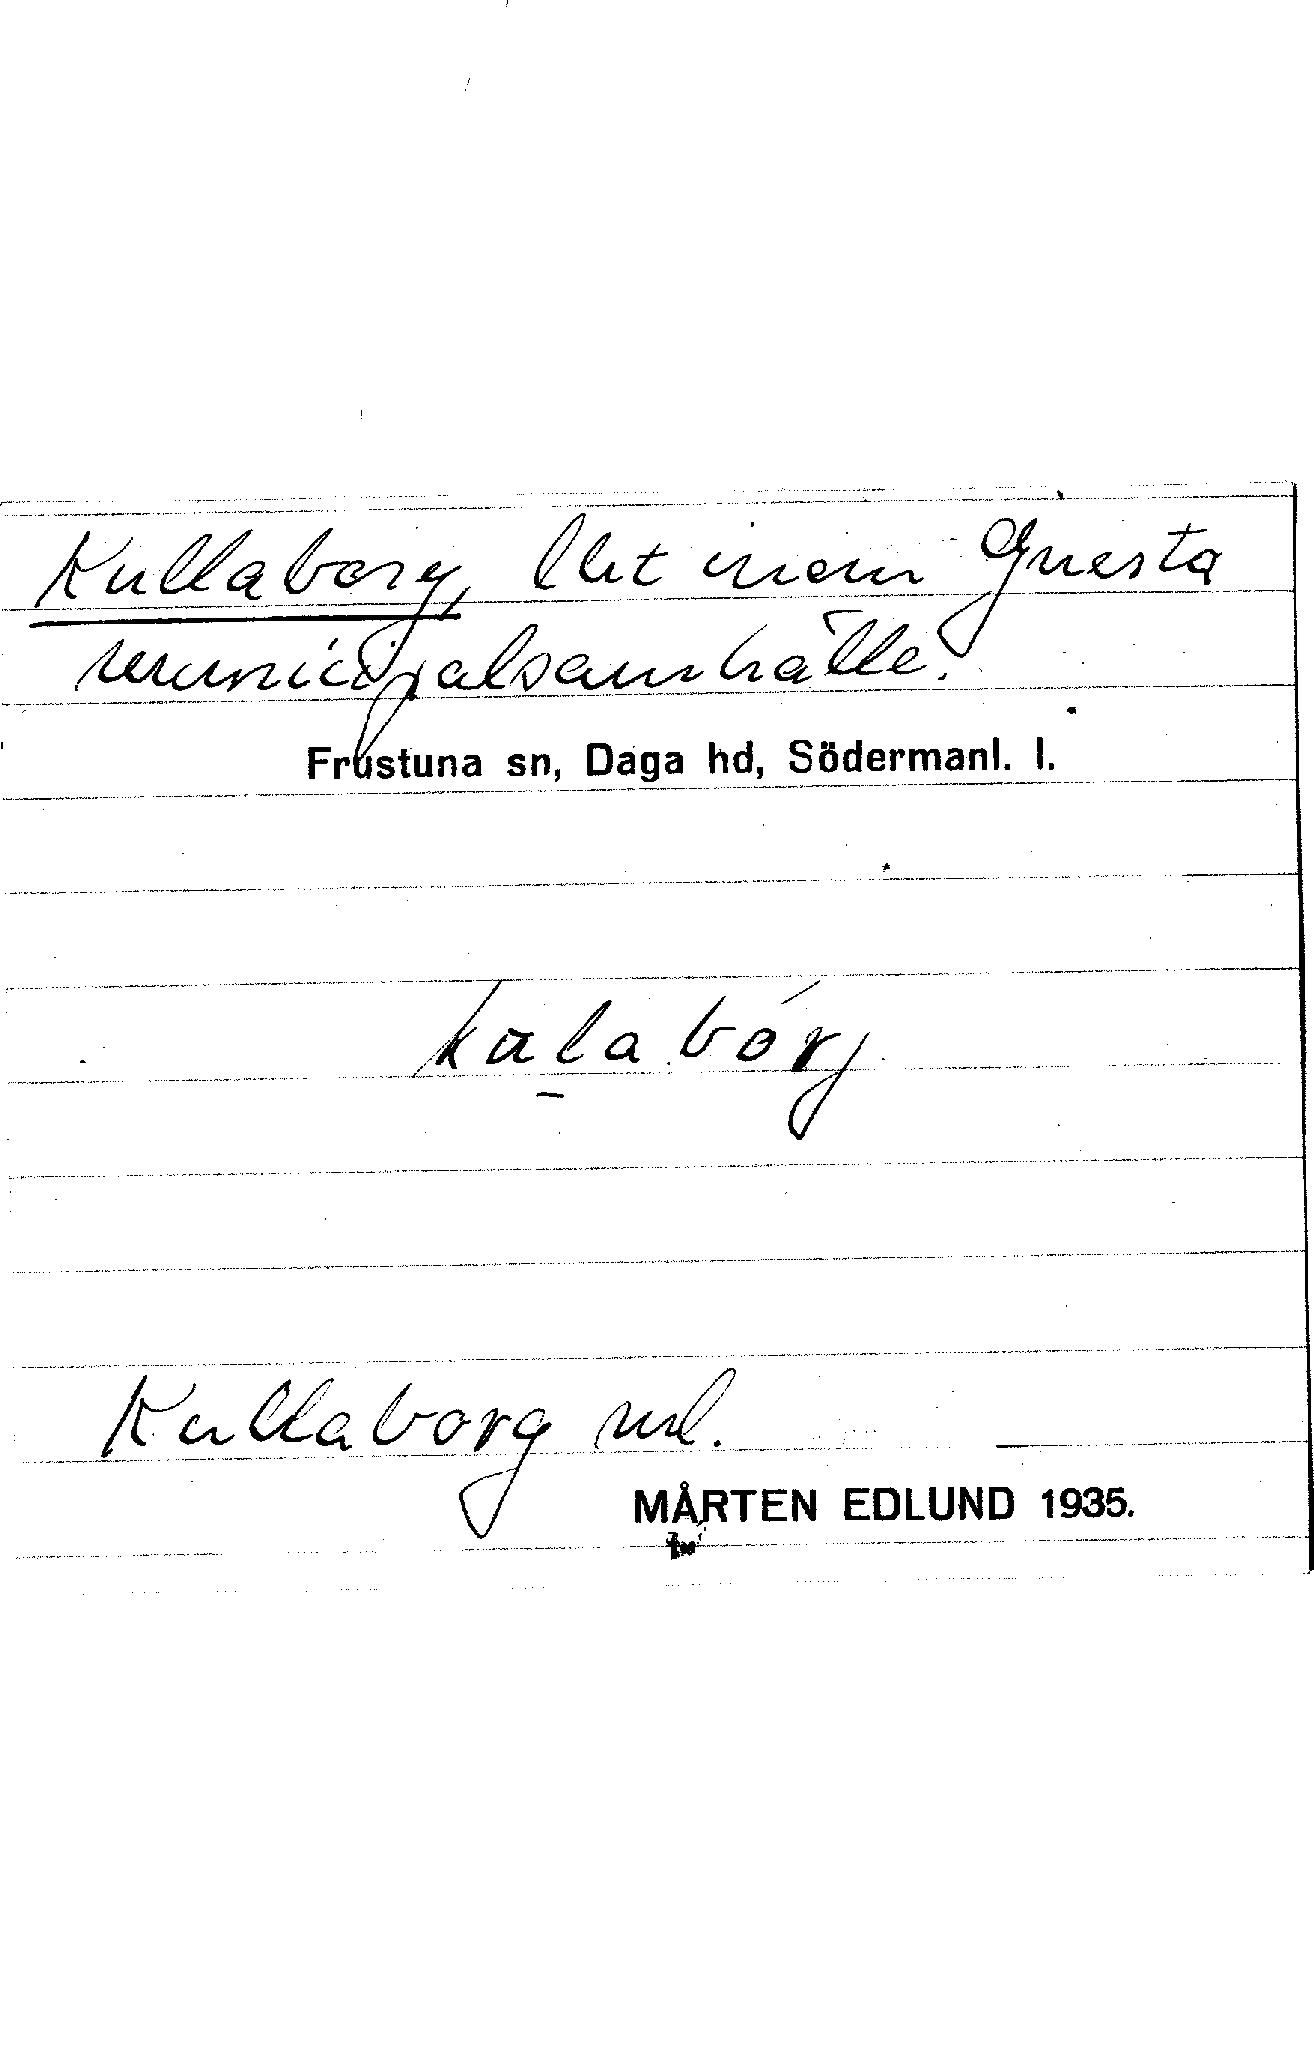 Kullaborg, lht inom Gnesta
municipalsamhälle.
Frustuna sn, Daga hd, Södermanl. l.
kulabórj
Kullaborg ml.
MÅRTEN EDLUND 1935.